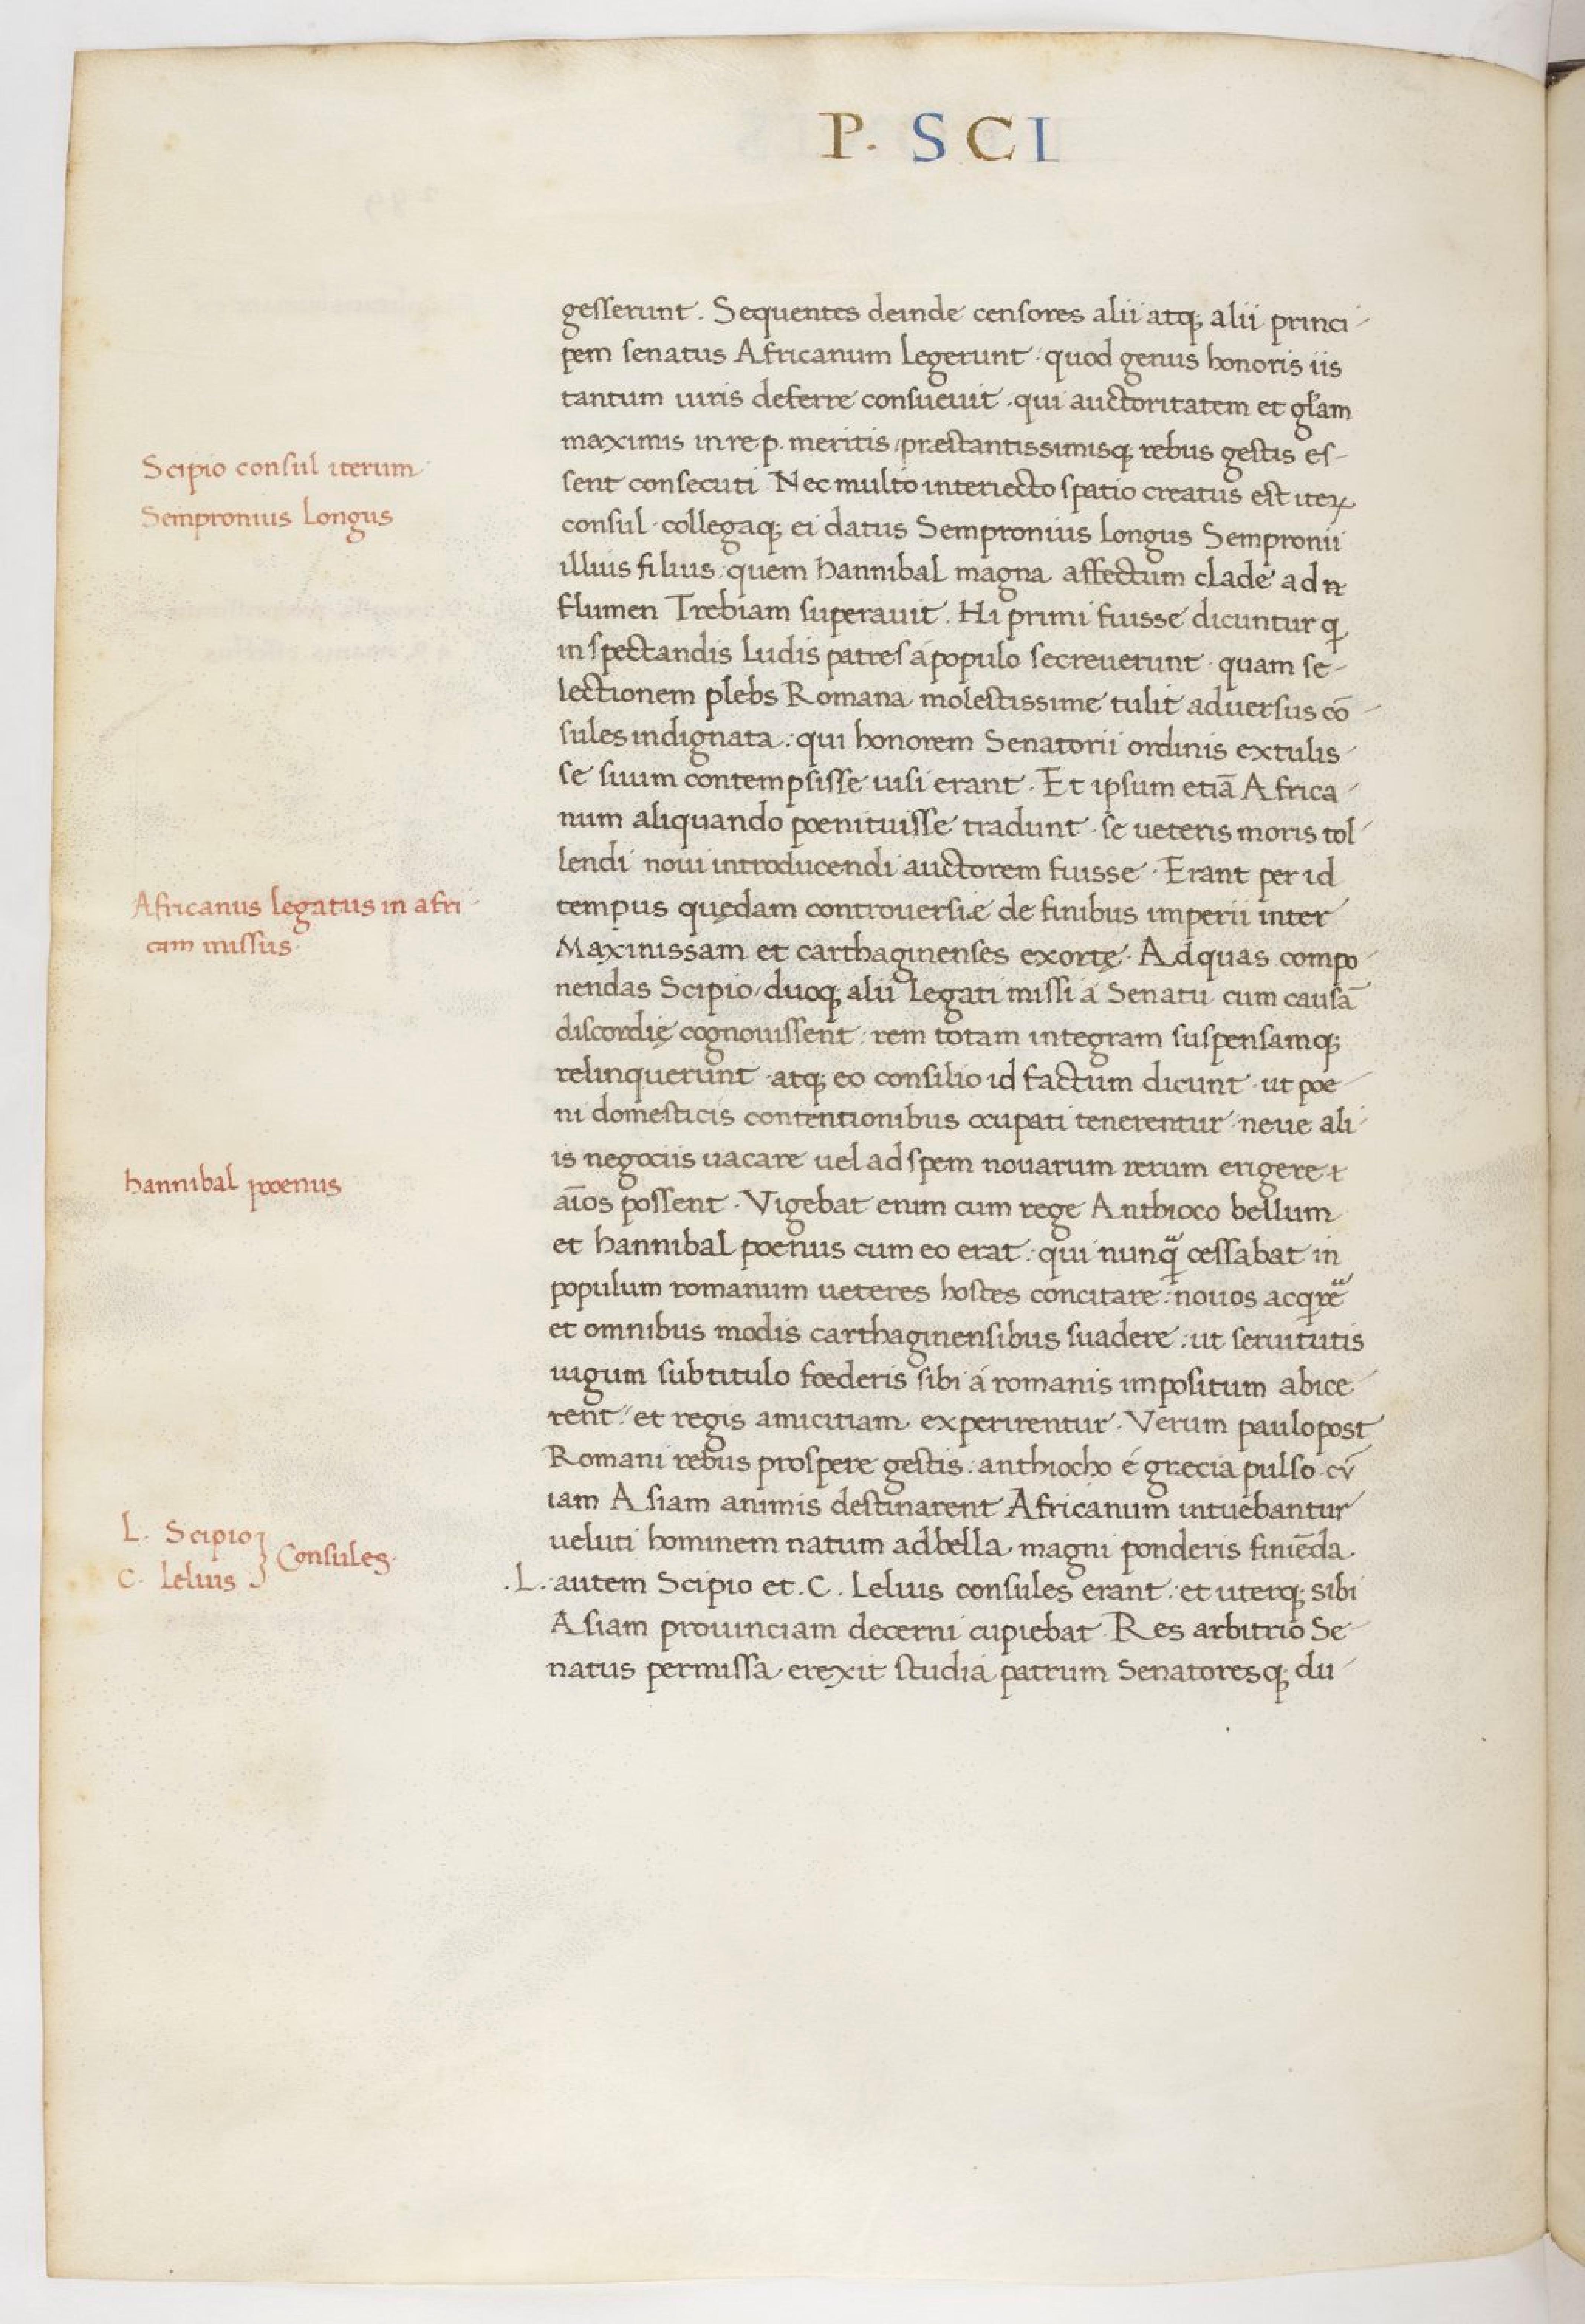 P. SCI
gesserunt. Sequentes deinde censores alii atq; alii princi-
pem senatus Africanum legerunt: quod genus honoris iis
tantum uiris deferre consueuit. qui auctoritatem et gl̃am
maximis in re.p. meritis, præstantissimisq; rebus gestis es-
sent consecuti Nec multo interiecto spatio creatus est iterꝝ
consul. collegaq; ei datus Sempronius Longus Sempronii
illius filius. quem hannibal magna affectum clade ad
flumen Trebiam superauit. Hi primi fuisse dicuntur q
in spectandis ludis patres á populo secreuerunt. quam se-
lectionem plebs Romana molestissime tulit aduersus cō-
sules indignata: qui honorem Senatorii ordinis extulis-
se suum contempsisse uisi erant. Et ipsum etiā Africa-
num aliquando poenituisse tradunt. se ueteris moris tol-
lendi noui introducendi auctorem fuisse. Erant per id
tempus quędam controuersiæ de finibus imperii inter
Maxinissam et carthaginenses exortę. Ad quas compo-
nendas Scipio, duoq; alii legati missi á Senatu cum causā
discordię cognouissent. rem totam integram suspensamq;
relinquerunt. atq; eo consilio id factum dicunt. ut poe-
ni domesticis contentionibus ocupati tenerentur. neue ali-
is negociis uacare uel ad spem nouarum rerum erigere
aīos possent. Vigebat enim cum rege Anthioco bellum
et hannibal poenus cum eo erat: qui nunq̃ cessabat in
populum romanum ueteres hostes concitare: nouos acqre
et omnibus modis carthaginensibus suadere: ut seruitutis
iugum sub titulo fœderis sibi á romanis impositum abice-
rent: et regis amicitiam experirentur. Verum paulo post
Romani rebus prospere gestis: anthiocho é grecia pulso. cū
iam Asiam animis destinarent Africanum intuebantur
ueluti hominem natum ad bella magni ponderis finiēda.
.L. autem Scipio et .C. Lelius consules erant: et uterq; sibi
Asiam prouinciam decerni cupiebat. Res arbitrio Se-
natus permissa erexit studia patrum Senatoresq; du-
Scipio consul iterum
Sempronius Longus
Africanus legatus in afri-
cam missus.
hannibal poenus
L. Scipio } Consules.
C. Lelius